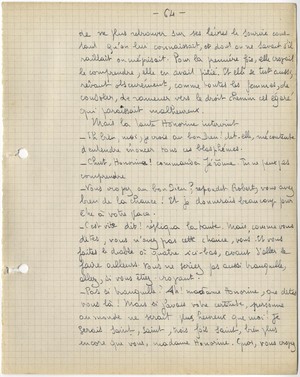 - 64 -
de ne plus retrouver sur ses lèvres le sourire cons-
tant qu'on leur connaissait, et dont on ne savait s'il
raillait ou méprisait. Pour la première fois, elle croyait
le comprendre, elle en avait pitié. Et elle se tut aussi,
rêvant obscurément, comme toutes les femmes, de
consoler, de ramener vers le droit chemin cet égaré
qui paraissait malheureux.
Mais la tante Honorine intervint
- Eh bien, moi, je crois au bon Dieu! et,
d'entendre énoncer tous ces blasphèmes.
- Chut, Honorine! commanda Jérôme. Tu ne peux pas
comprendre
- Vous croyez au bon Dieu? répondit Robert, vous avez
bien de la chance! Et je donnerais beaucoup pour
être à votre place.
- C'est vite dit! répliqua la tante. Mais, comme vous
dites, vous n'avez pas cette chance, vous. Et vous
faites le diable à quatre ici-bas, avant d'aller le
faire ailleurs. Vous ne seriez pas aussi tranquille,
allez, si vous étiez croyant!
- Pas si tranquille! Ah! madame Honorine, que dites-
vous là! Mais si j'avais votre certitude, personne
au monde ne serait plus heureux que moi! Je
serais saint, saint, trois fois saint, bien plus
encore que vous, madame Honorine. Quoi, vous croyez